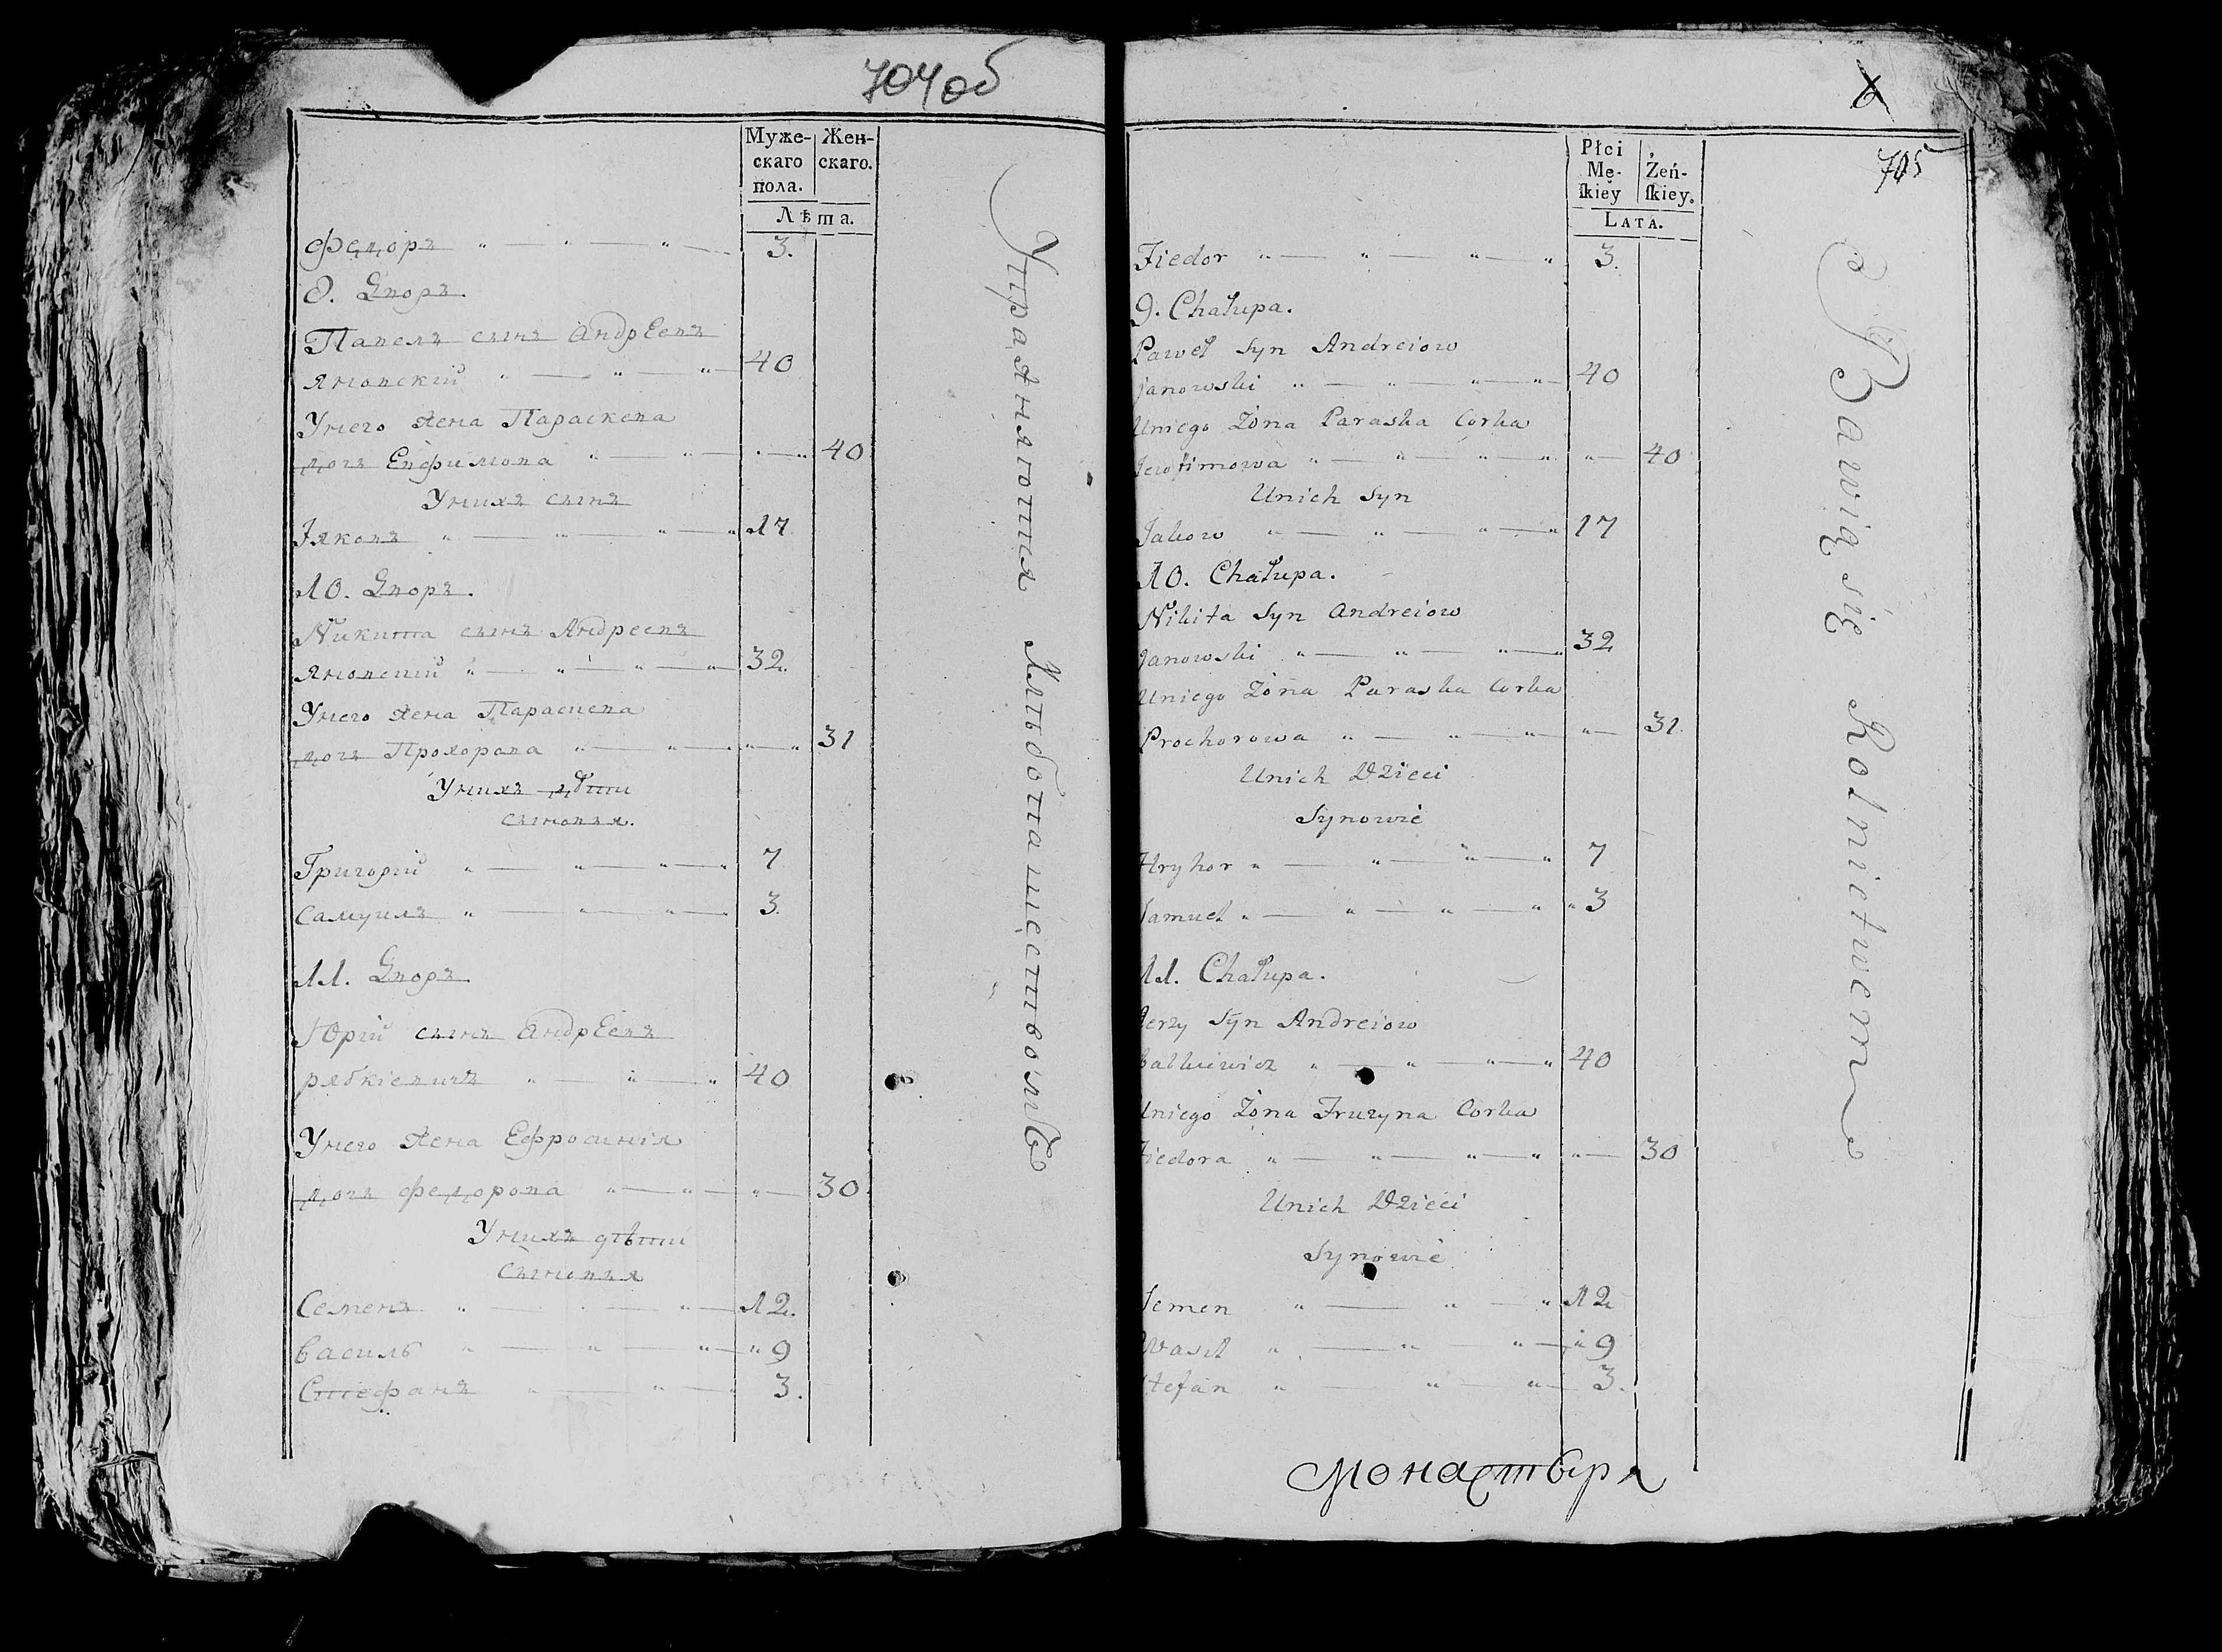 704 об
Муже- Жен-
скаго скаго.
пола.
Лѣта.
Федоръ " — " — " — 3.
9. Дворъ.
Павелъ сынъ Андреевъ
Яновскій " — " — " — 40
Унего жена Параскева
дочь Евфимова " — " — " — " 40
Унихъ сынъ
Іяковъ " — " — " — " 17
10. Дворъ.
Никита сынъ Андреевъ
Яновскій " — " — " — " 32.
Унего жена Параскева
дочь Прохорава " — " — " — " 31
Унихъ дѣти
сыновья.
Григорій " — " — " — " 7
Самуилъ " — " — " — " 3.
11. Дворъ.
Юрій сынъ Андреевъ
рябкіевичъ " — " — " 40
Унего жена Ефросинія
дочь федорова " — " — " — 30.
Унихъ дѣти
Сыновья
Семенъ " — " — 12.
василь " — " — " — " 9
Стефанъ " — " — " 3.
Упражняются Хлѣбопашествомъ
6
705
Płci Żeń-
Mę- ſkiey.
ſkiey
LATA.
Fiedor " — " — " — " 3.
9. Chałupa.
Paweł Syn Andreiow
Janowski " — " — " — " — 40
Uniego Żona Paraska Corka
Jewfimowa " — " — " — " " — 40
Unich Syn
Jakow " — " — " — " 17
10. Chałupa.
Nikita Syn Andreiow
Janowski " — " — " — " 32
Uniego Żona Paraska Corka
Prochorowa " — " — " — " " — 31.
Unich Dzieci
Synowie
Hryhor " — " — " — " 7
Samuel " — " — " — " " 3
11. Chałupa.
Jerzy Syn Andreiow
" — " — " — " 40
Uniego Żona Fruzyna Corka
Fiedora " — " — " — " " — 30
Unich Dzieci
Synowie
Semen " — " — " 12
Wasil " — " — " — " 9
Stefan " — " — " — 3.
Bawią się Rolnictwem
Монастыря